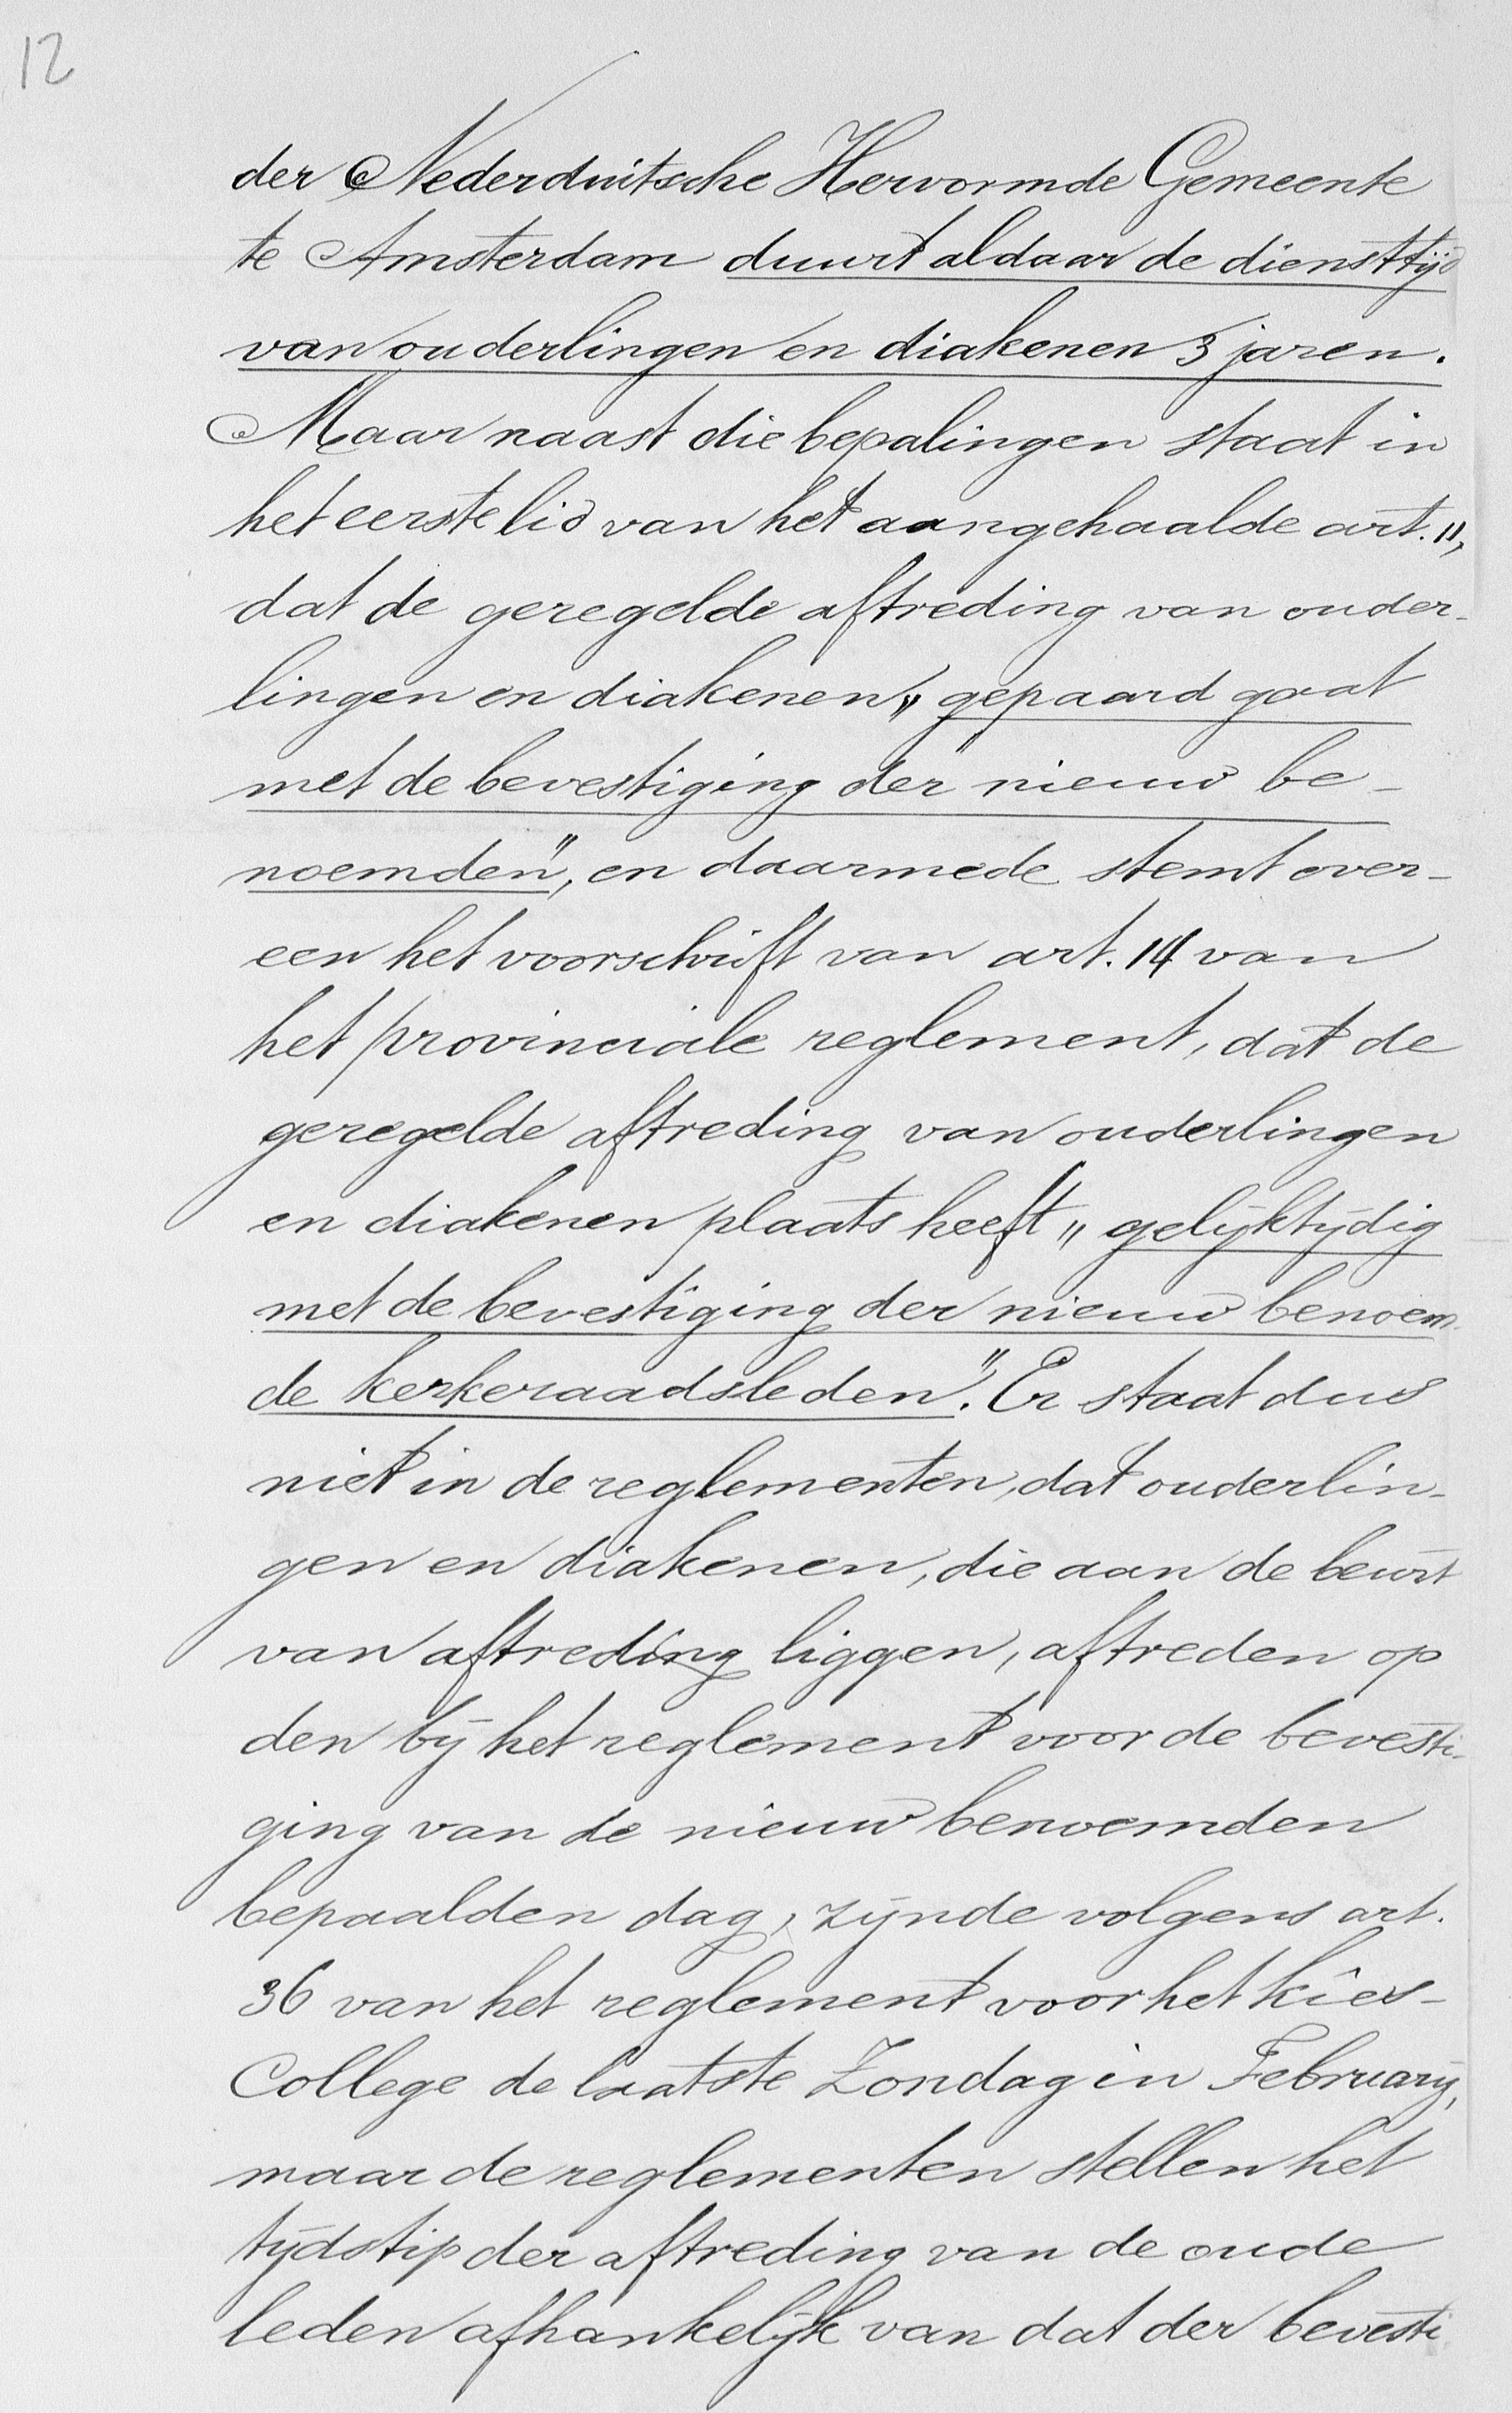 12
der Nederduitsche Hervormde Gemeente
te Amsterdam duurt aldaar de diensttijd
van ouderlingen en diakenen 3 jaren.
Maar naast die bepalingen staat in
het eerste lid van het aangehaalde art. 11,
dat de geregelde aftreding van ouder-
lingen en diakenen „gepaard gaat
met de bevestiging der nieuw be-
noemden", en daarmede stemt over-
een het voorschrift van art. 14 van
het provinciale reglement, dat de
geregelde aftreding van ouderlingen
en diakenen plaats heeft „gelijktijdig
met de bevestiging der nieuw benoem-
de kerkeraadsleden". Er staat dus
niet in de reglementen, dat ouderlin-
gen en diakenen, die aan de beurt
van aftreding liggen, aftreden op
den bij het reglement voor de bevesti-
ging van de nieuw benoemden
bepaalden dag, zijnde volgens art.
36 van het reglement voor het kies-
College de laatste Zondag in February,
maar de reglementen stellen het
tijdstip der aftreding van de oude
leden afhankelijk van dat der bevesti